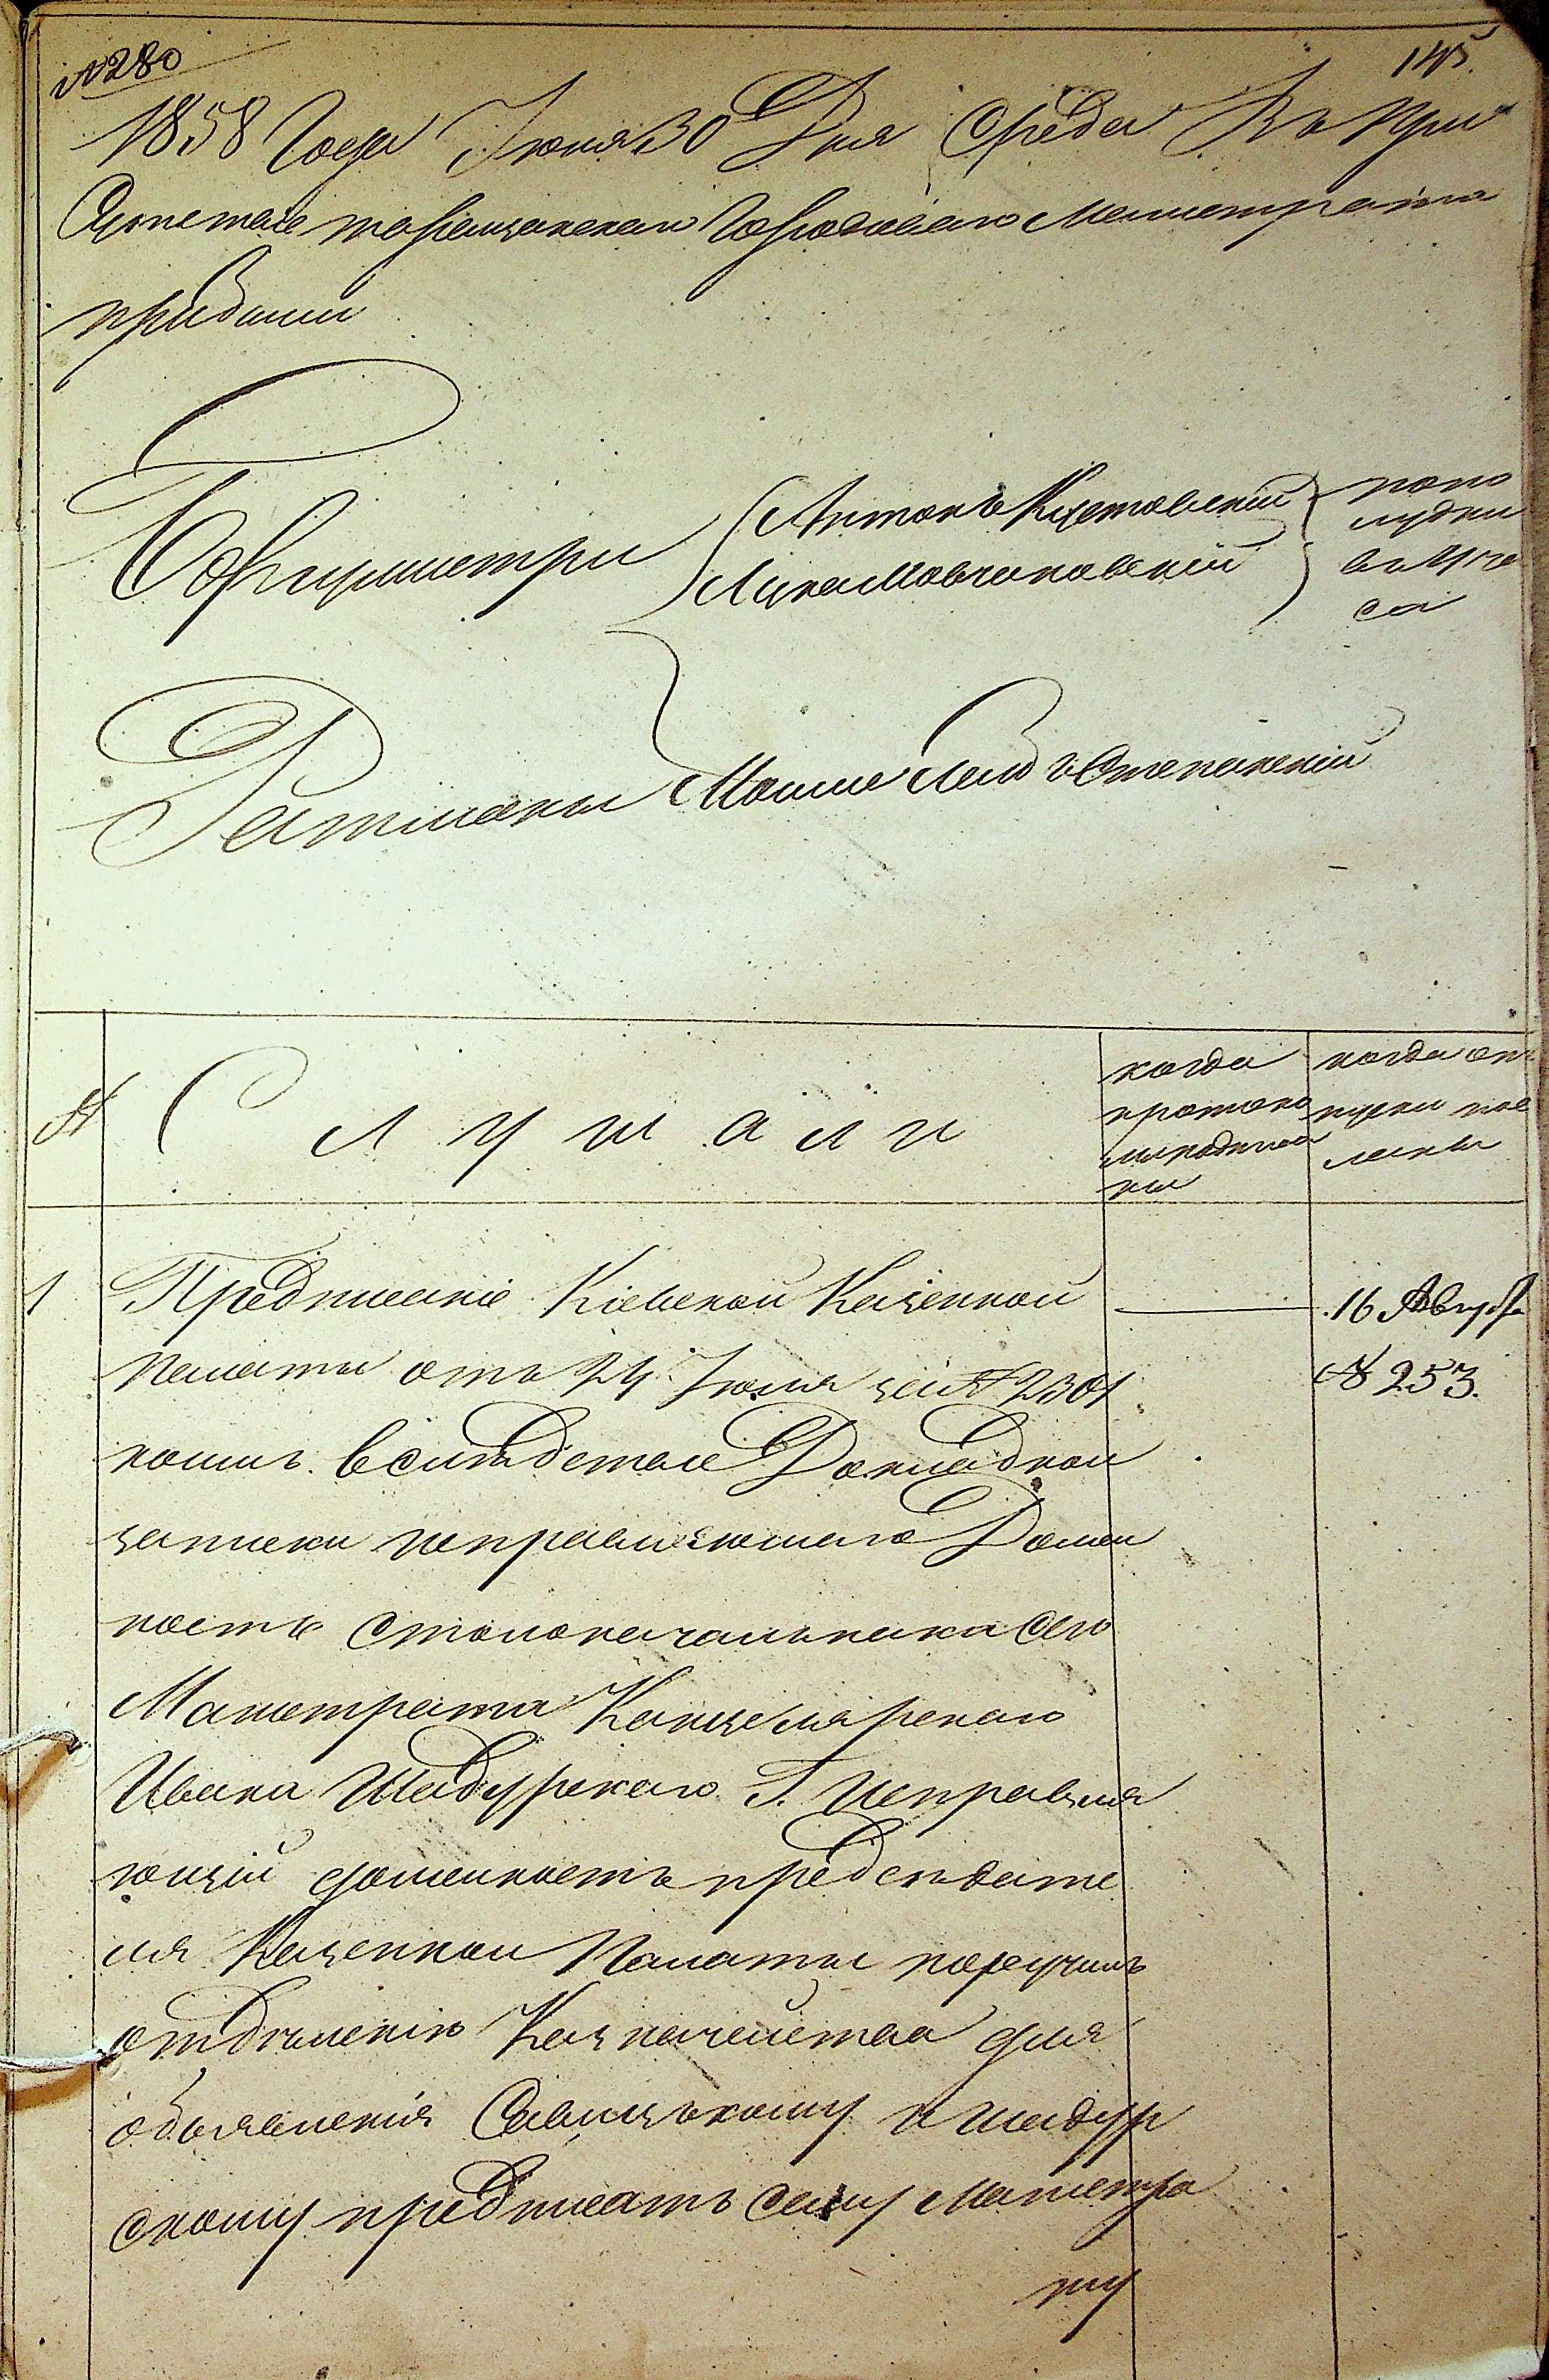 № 280
145.
1858 Года Июля 30 Дня Среда Въ при
сутствіе таращанскаго Городоваго Магистрата
прибыли
Бургимистри
Антонъ
Лука Мовчановскій
попо
лудни
въ
са
Ратманы Мошие Лейб Степанскій
№ Слушали
когда
протоко
лы подписа
ны
когда от
пуски пос
ланы
1 Предписаніе Кіевской Казенной
Палаты отъ 24 Июля за № 2301
коимъ. въ слѣдствіе Докладной
записки исправляющаго Долж
ность столоначальника сего
Магистрата Канцелярскаго
Ивана Шадурскаго Г. Исправля
ющій должность предсѣдате
ля Казенной Палаты поручилъ
отдѣленію Казначейства для
объявленія Савицькому и Шадур
скому предписать сему Магистра
ту
16 Августа
№ 253.